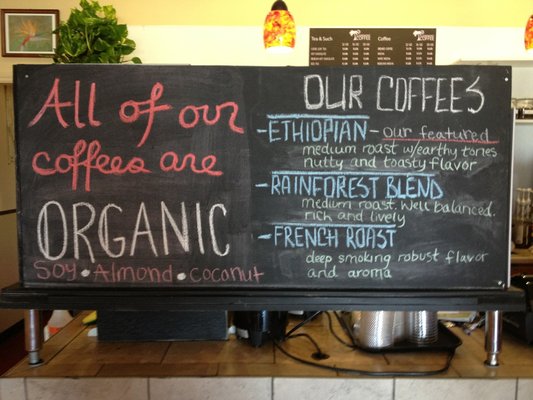 All of our
coffees are
ORGANIC
Soy • Almond • coconut
OUR COFFEES
- ETHIOPIAN - our featured
medium roast w/earthy tones
nutty and toasty flavor
- RAINFOREST BLEND
medium roast. Well balanced.
rich and lively
- FRENCH ROAST
deep smoking robust flavor
and aroma
COFFEE
COFFEE
Tea & Such
Coffee